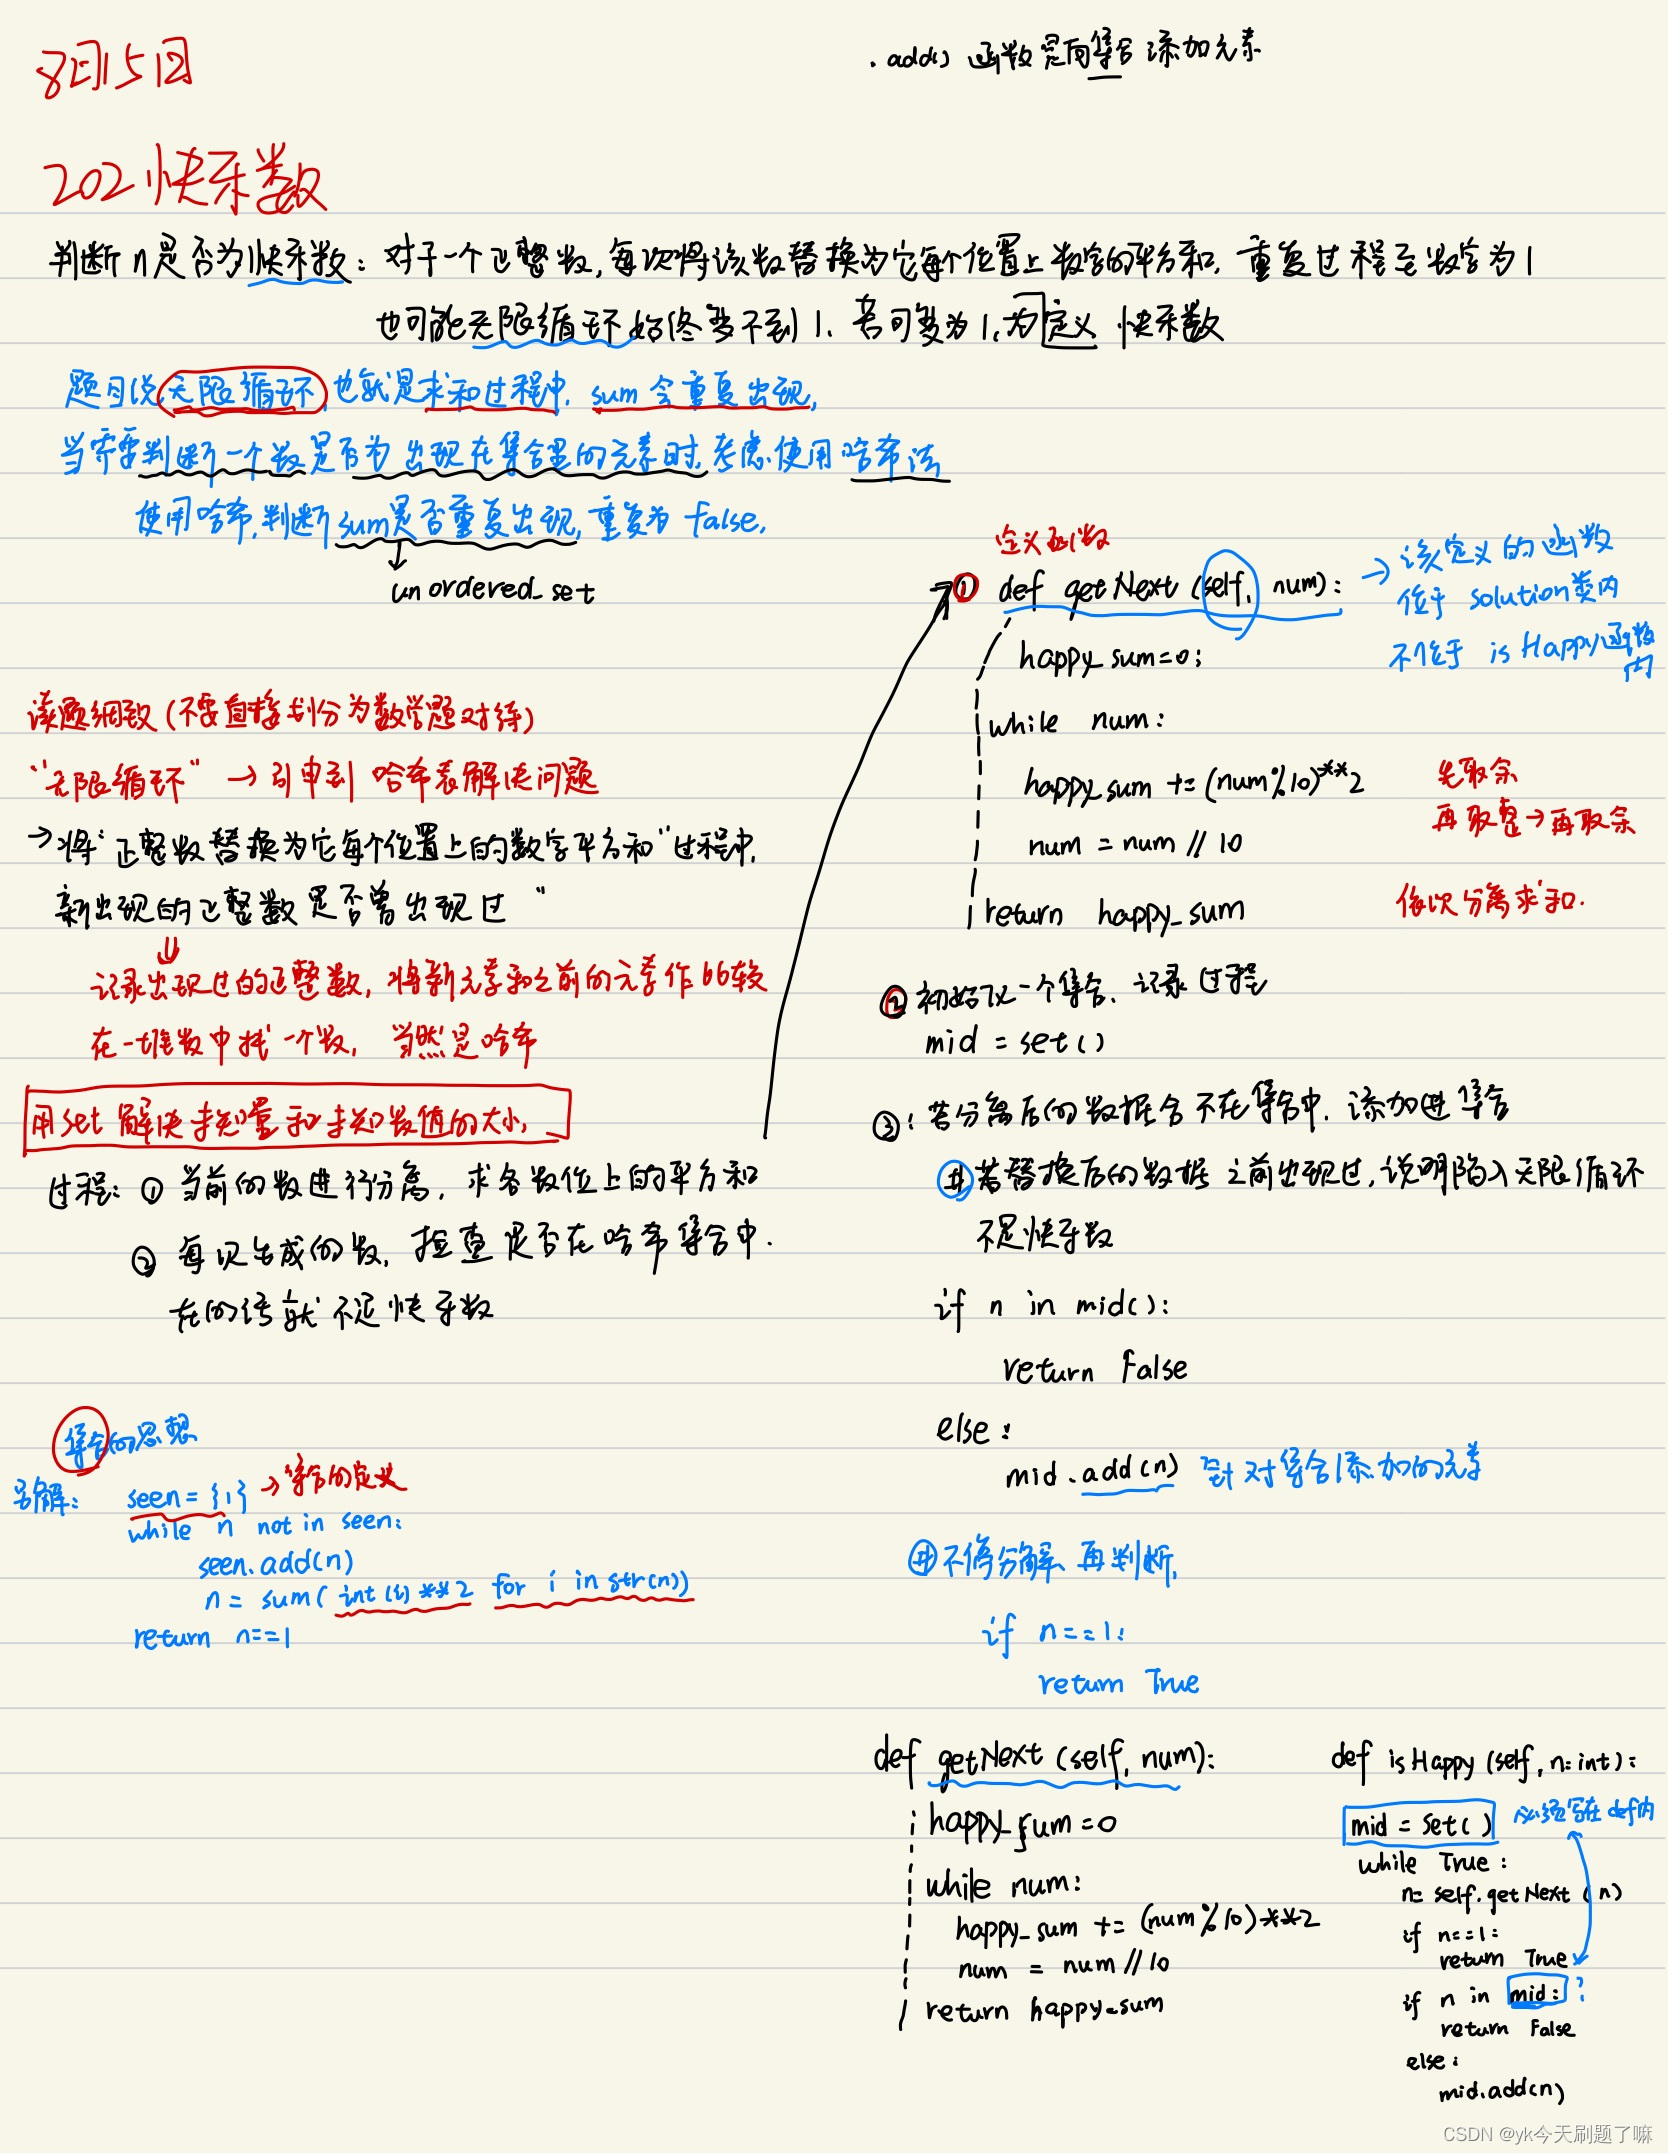 8月15日
.add() 函数是向集合添加元素
202 快乐数
判断n是否为快乐数：对于一个正整数，每次将该数替换为它每个位置上数字的平方和，重复过程至数字为1
也可能无限循环始终变不到1，若可变为1，为定义 快乐数
题目说无限循环，也就是求和过程中，sum会重复出现，
当需要判断一个数是否为出现在集合里的元素时，考虑使用哈希法
使用哈希，判断sum是否重复出现，重复为false.
unordered_set
读题细致（不要直接划分为数学题对待）
“无限循环” → 引申到 哈希表解决问题
→将“正整数替换为它每个位置上的数字平方和”过程中，
新出现的正整数是否曾出现过”
记录出现过的正整数，将新元素和之前的元素作比较
在一堆数中找一个数，当然是哈希
用set 解决未知量和未知数值的大小，
过程：① 当前的数进行分离，求各数位上的平方和
② 每次生成的数，检查是否在哈希集合中.
在的话就不是快乐数
集合的思想
另解：
seen = {1} →集合的定义
while n not in seen:
seen.add(n)
n = sum( int(i)**2 for i in str(n))
return n==1
定义函数
① def getNext (self, num):
→ 该定义的函数
位于 solution类内
不位于 isHappy函数内
happy_sum=0;
while num:
happy_sum += (num%10)**2
num = num // 10
return happy_sum
先取余
再取整→再取余
依次分离求和.
② 初始化一个集合，记录过程
mid = set()
③：若分离后的数据会不在集合中，添加进集合
#若替换后的数据之前出现过，说明陷入无限循环
不是快乐数
if n in mid():
return False
else:
mid.add(n) 针对集合添加的元素
#不停分解、再判断，
if n==1:
return True
def getNext (self, num):
happy_sum=0
while num:
happy_sum += (num%10)**2
num = num//10
return happy_sum
def isHappy (self, n:int):
mid = set() 必须写在def内
while True:
n= self.getNext (n)
if n==1:
return True
if n in mid: ?
return False
else:
mid.add(n)
CSDN @yk今天刷题了嘛